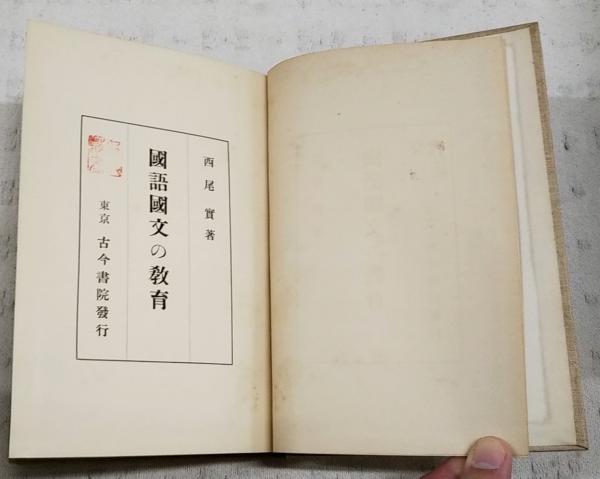 西尾實著
國語國文の敎育
東京 古今書院發行